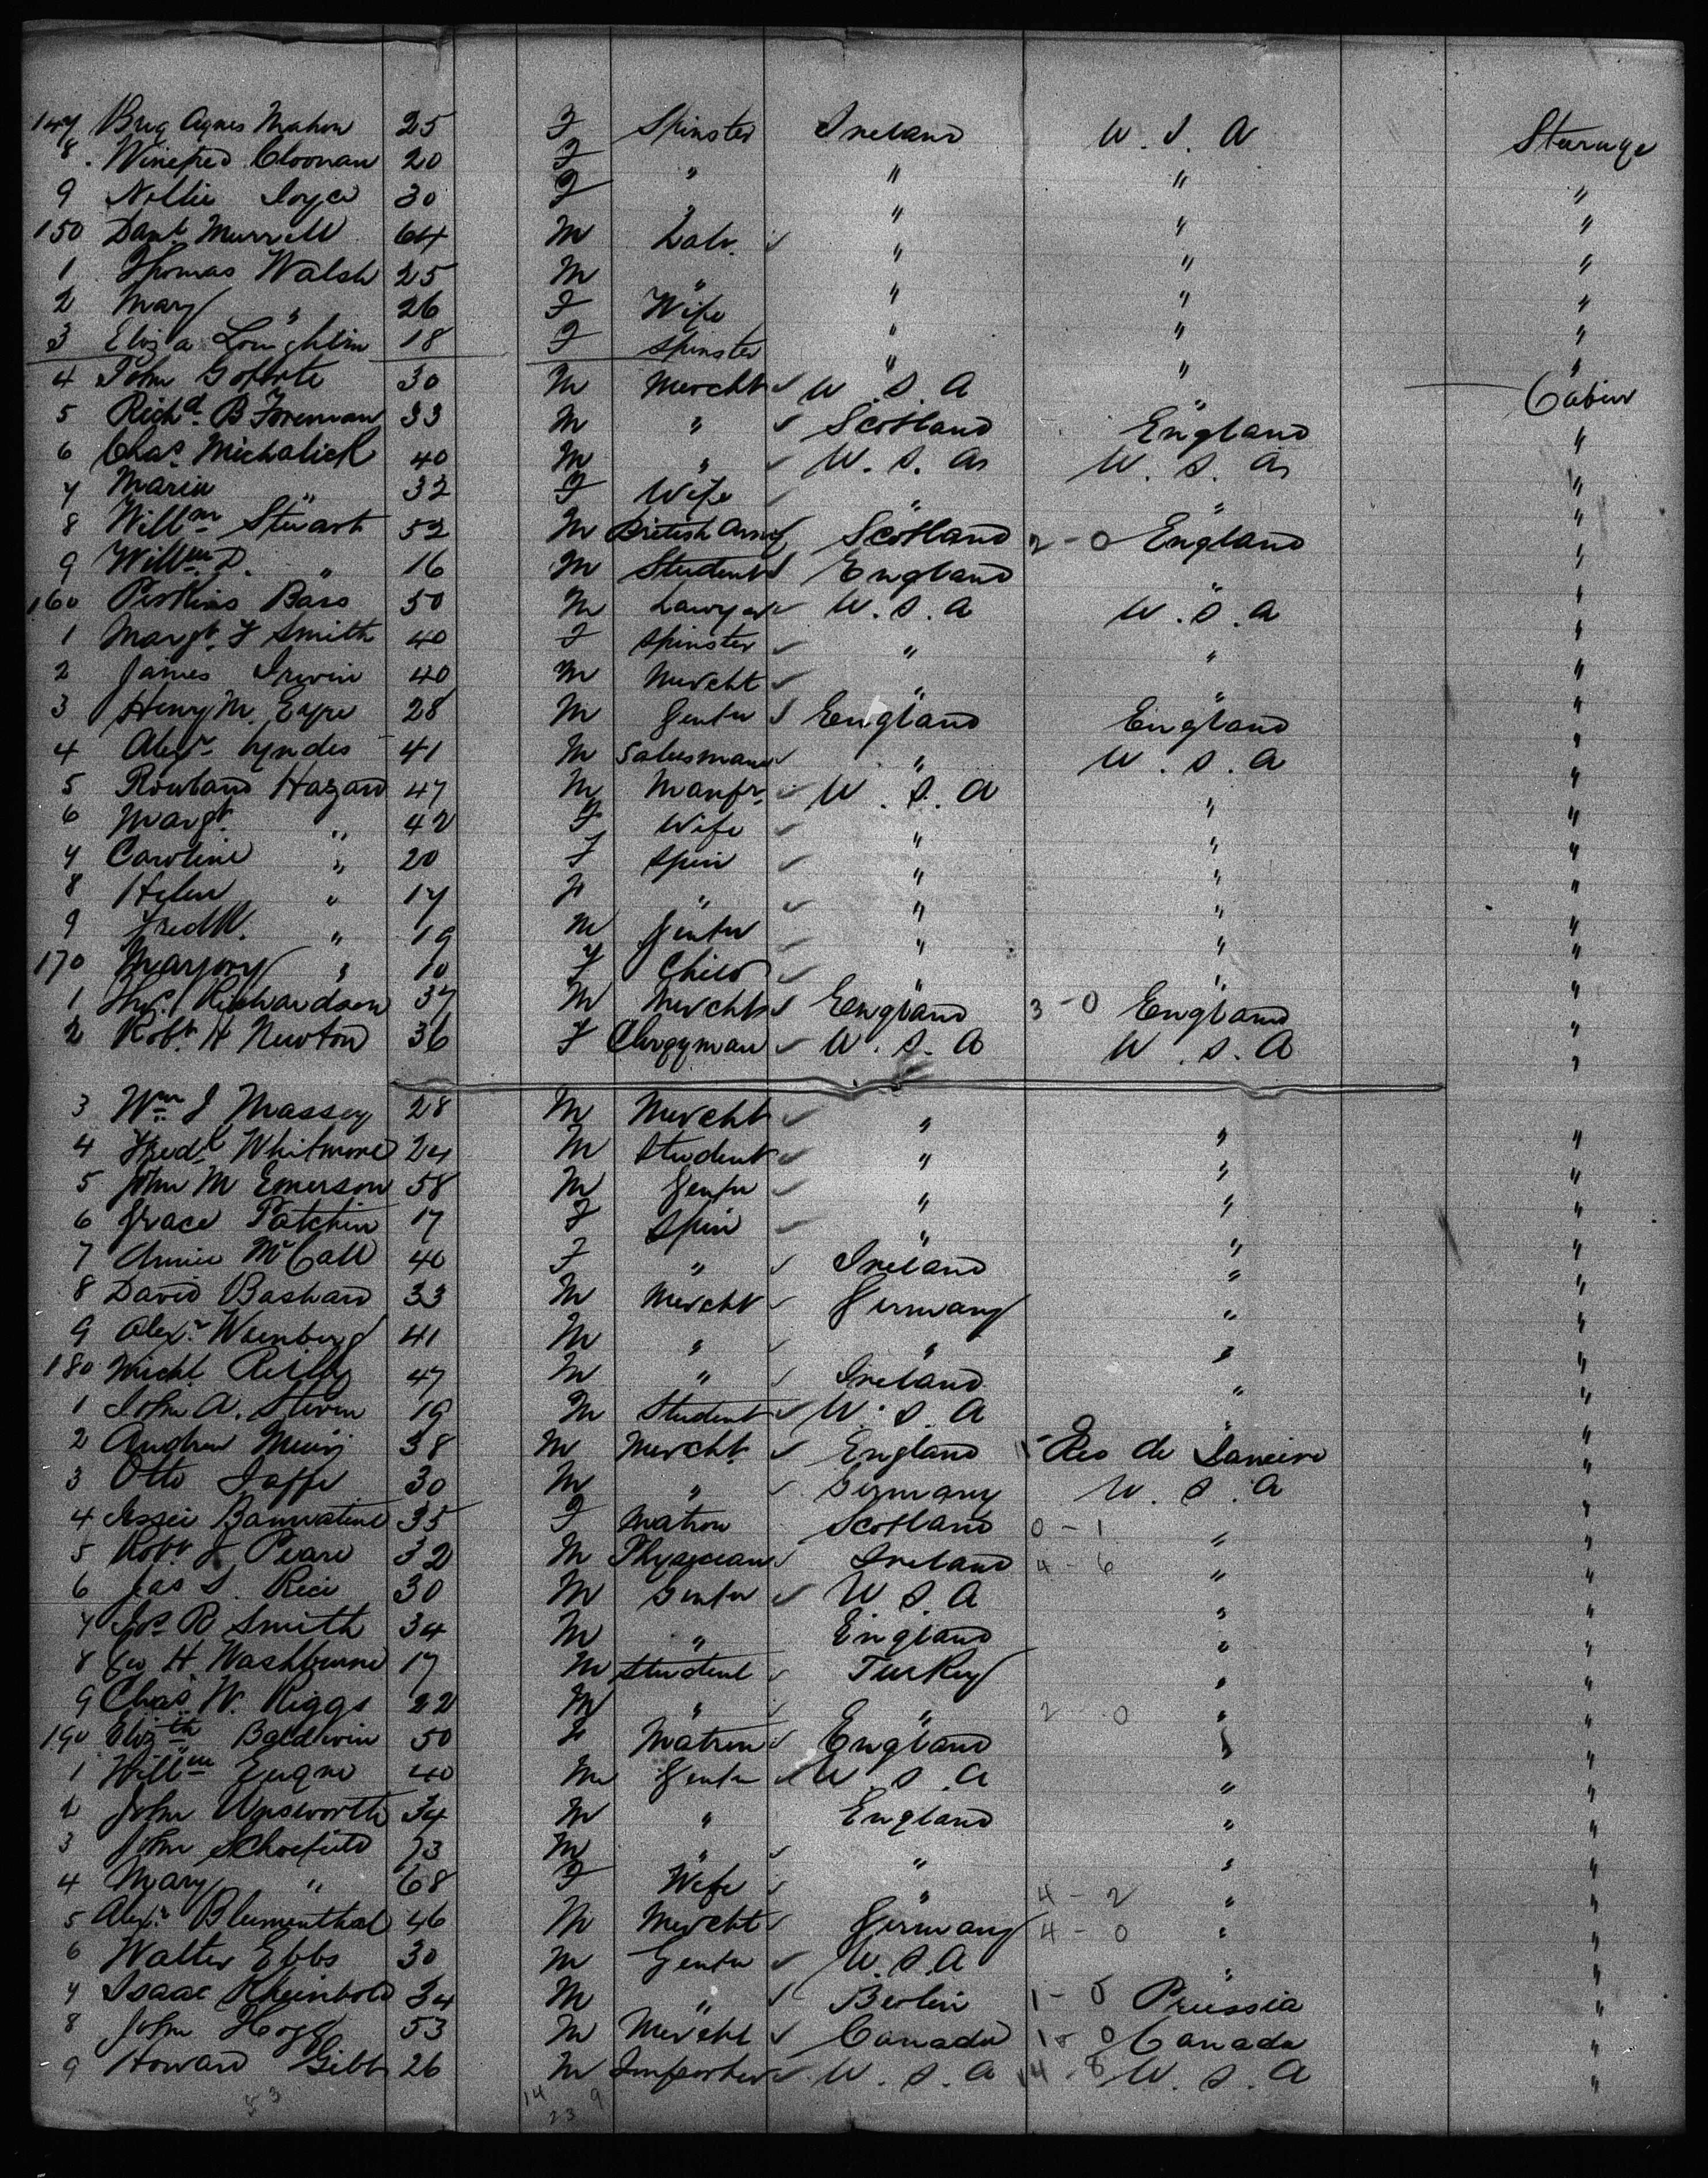 147 Brig Agnes Mahon 25 F Spinster Ireland U. S. A Steerage
8 Winefred Cloonan 20 F " " " "
9 Nellie Joyce 30 F " " " "
150 Danl Murrell 64 M Labr. " " "
1 Thomas Walsh 25 M " " " "
2 Mary " 26 F Wife " " "
3 Eliza Loughlin 18 F Spinster " " "
4 John 30 M Mercht U. S. A " Cabin
5 Richd. B Foreman 33 M " Scotland England "
6 Chas. Michalick 40 M " U. S. A U. S. A "
7 Maria " 32 F Wife " " "
8 Willm Stewart 52 M British Army Scotland 2-0 England "
9 Willm D. " 16 M Student England " "
160 Perkins Bass 50 M Lawyer U. S. A U. S. A "
1 Margt. F Smith 40 F Spinster " " "
2 James Irwin 40 M Mercht " " "
3 Henry M. Eyre 28 M Gentn England England "
4 Alexr. Lyndes 41 M Salesman " U. S. A "
5 Rowland Hazard 47 M Manfr. U. S. A " "
6 Margt. " 42 F Wife " " "
7 Caroline " 20 F Spin " " "
8 Helen " 17 F " " " "
9 Fredk. " 19 M Gentn " " "
170 Marjory " 10 F Child " " "
1 Richardson 37 M Mercht England 3-0 England "
2 Robt. H Newton 36 F Clergyman U. S. A U. S. A "
3 Wm J Massey 28 M Mercht " " "
4 Fredk Whitmore 24 M Student " " "
5 John M Emerson 58 M Gentn " " "
6 Grace Patchin 17 F Spin " " "
7 Annie McCall 40 F " Ireland " "
8 David Bashard 33 M Mercht Germany " "
9 Alexr. Weinberg 41 M " " " "
180 Michl Reilly 47 M " Ireland " "
1 John A. Steven 19 M Student U. S. A " "
2 Andrew Muir 38 M Mercht. England Rio de Janeiro "
3 Otto Jaffe 30 M " Germany U. S. A "
4 Jessie Bannatine 35 F Matron Scotland 0-1 " "
5 Robt J Peare 32 M Physician Ireland 4-6 " "
6 Jas S. Rice 30 M Gentn U S. A " "
7 Jos R Smith 34 M " England " "
8 Geo H. Washburne 17 M Student Turkey " "
9 Chas. W. Riggs 22 M " " 2-0 " "
190 Elizth Baldwin 50 F Matron England " "
1 Willm Eugne 40 M Gentn U. S. A " "
2 John Unsworth 34 M " England " "
3 John Schofield 73 M " " " "
4 Mary " 68 F Wife " 4-2 " "
5 Alexr. Blumenthal 46 M Mercht Germany 4-0 " "
6 Walter Ebbs 30 M Gentn U. S. A " "
7 Isaac Rheinbold 34 M " Berlin 1-0 Prussia "
8 John Hogg 53 M Mercht Canada Canada "
9 Howard Gibb 26 M Importer U. S. A U. S. A "
53 14 9
23